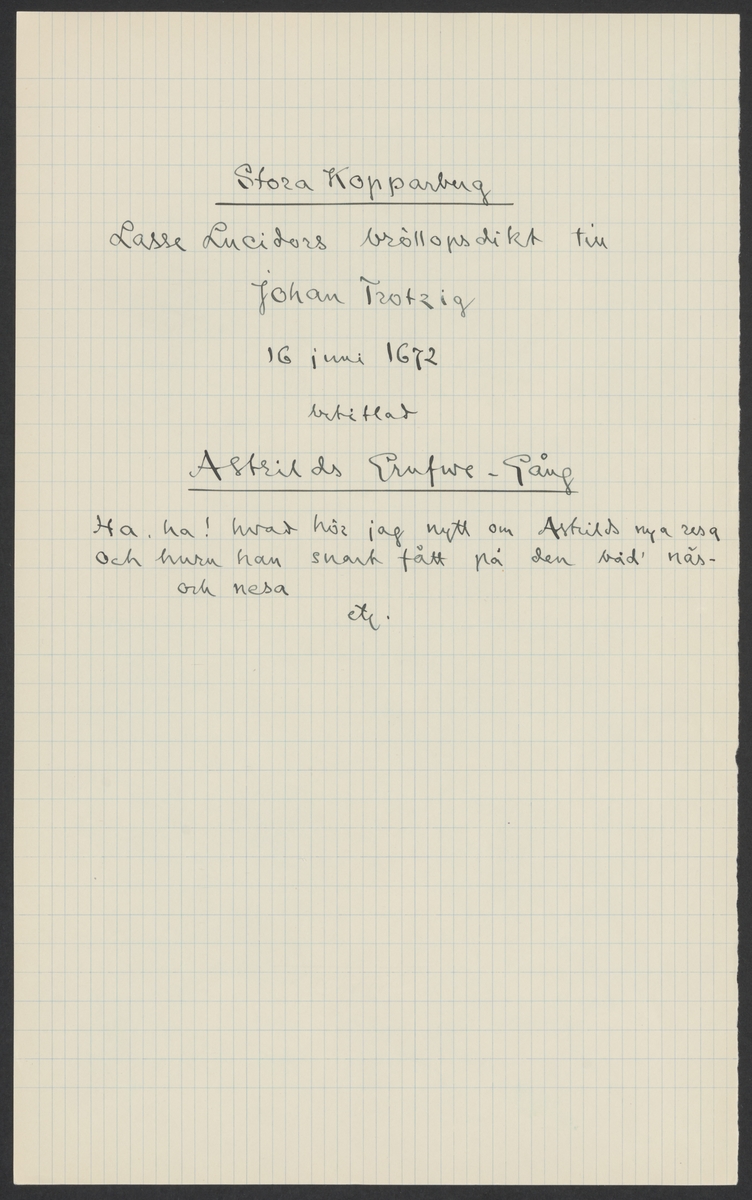 Stora Kopparberg
Lasse Lucidors bröllopsdikt till
Johan Trotzig
16 juni 1672
betitlad
Astrilds Grufwe-Gång
Ha, ha! hvad hör jag nytt om Astrilds nya resa
och huru han snart fått på den båd' näs-
och nesa
etc.